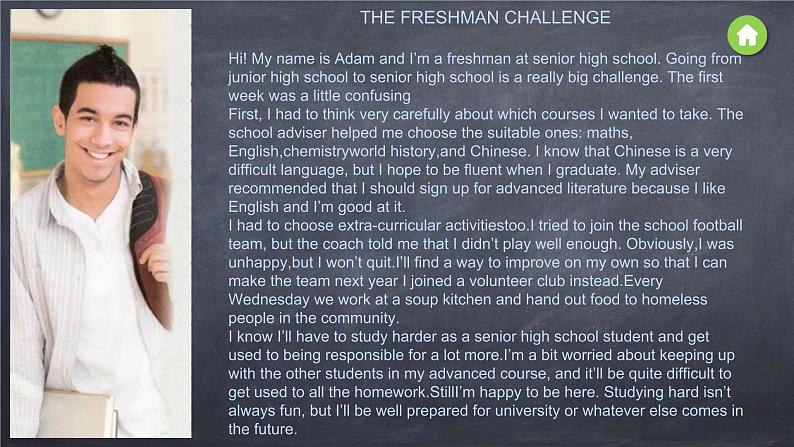 THE FRESHMAN CHALLENGE
Hi! My name is Adam and I'm a freshman at senior high school. Going from
junior high school to senior high school is a really big challenge. The first
week was a little confusing
First, I had to think very carefully about which courses I wanted to take. The
school adviser helped me choose the suitable ones: maths,
English,chemistryworld history,and Chinese. I know that Chinese is a very
difficult language, but I hope to be fluent when I graduate. My adviser
recommended that I should sign up for advanced literature because I like
English and I'm good at it.
I had to choose extra-curricular activitiestoo.I tried to join the school football
team, but the coach told me that I didn't play well enough. Obviously,I was
unhappy,but I won't quit.I'll find a way to improve on my own so that I can
make the team next year I joined a volunteer club instead.Every
Wednesday we work at a soup kitchen and hand out food to homeless
people in the community.
I know I'll have to study harder as a senior high school student and get
used to being responsible for a lot more.I'm a bit worried about keeping up
with the other students in my advanced course, and it'll be quite difficult to
get used to all the homework.StillI'm happy to be here. Studying hard isn't
always fun, but I'll be well prepared for university or whatever else comes in
the future.